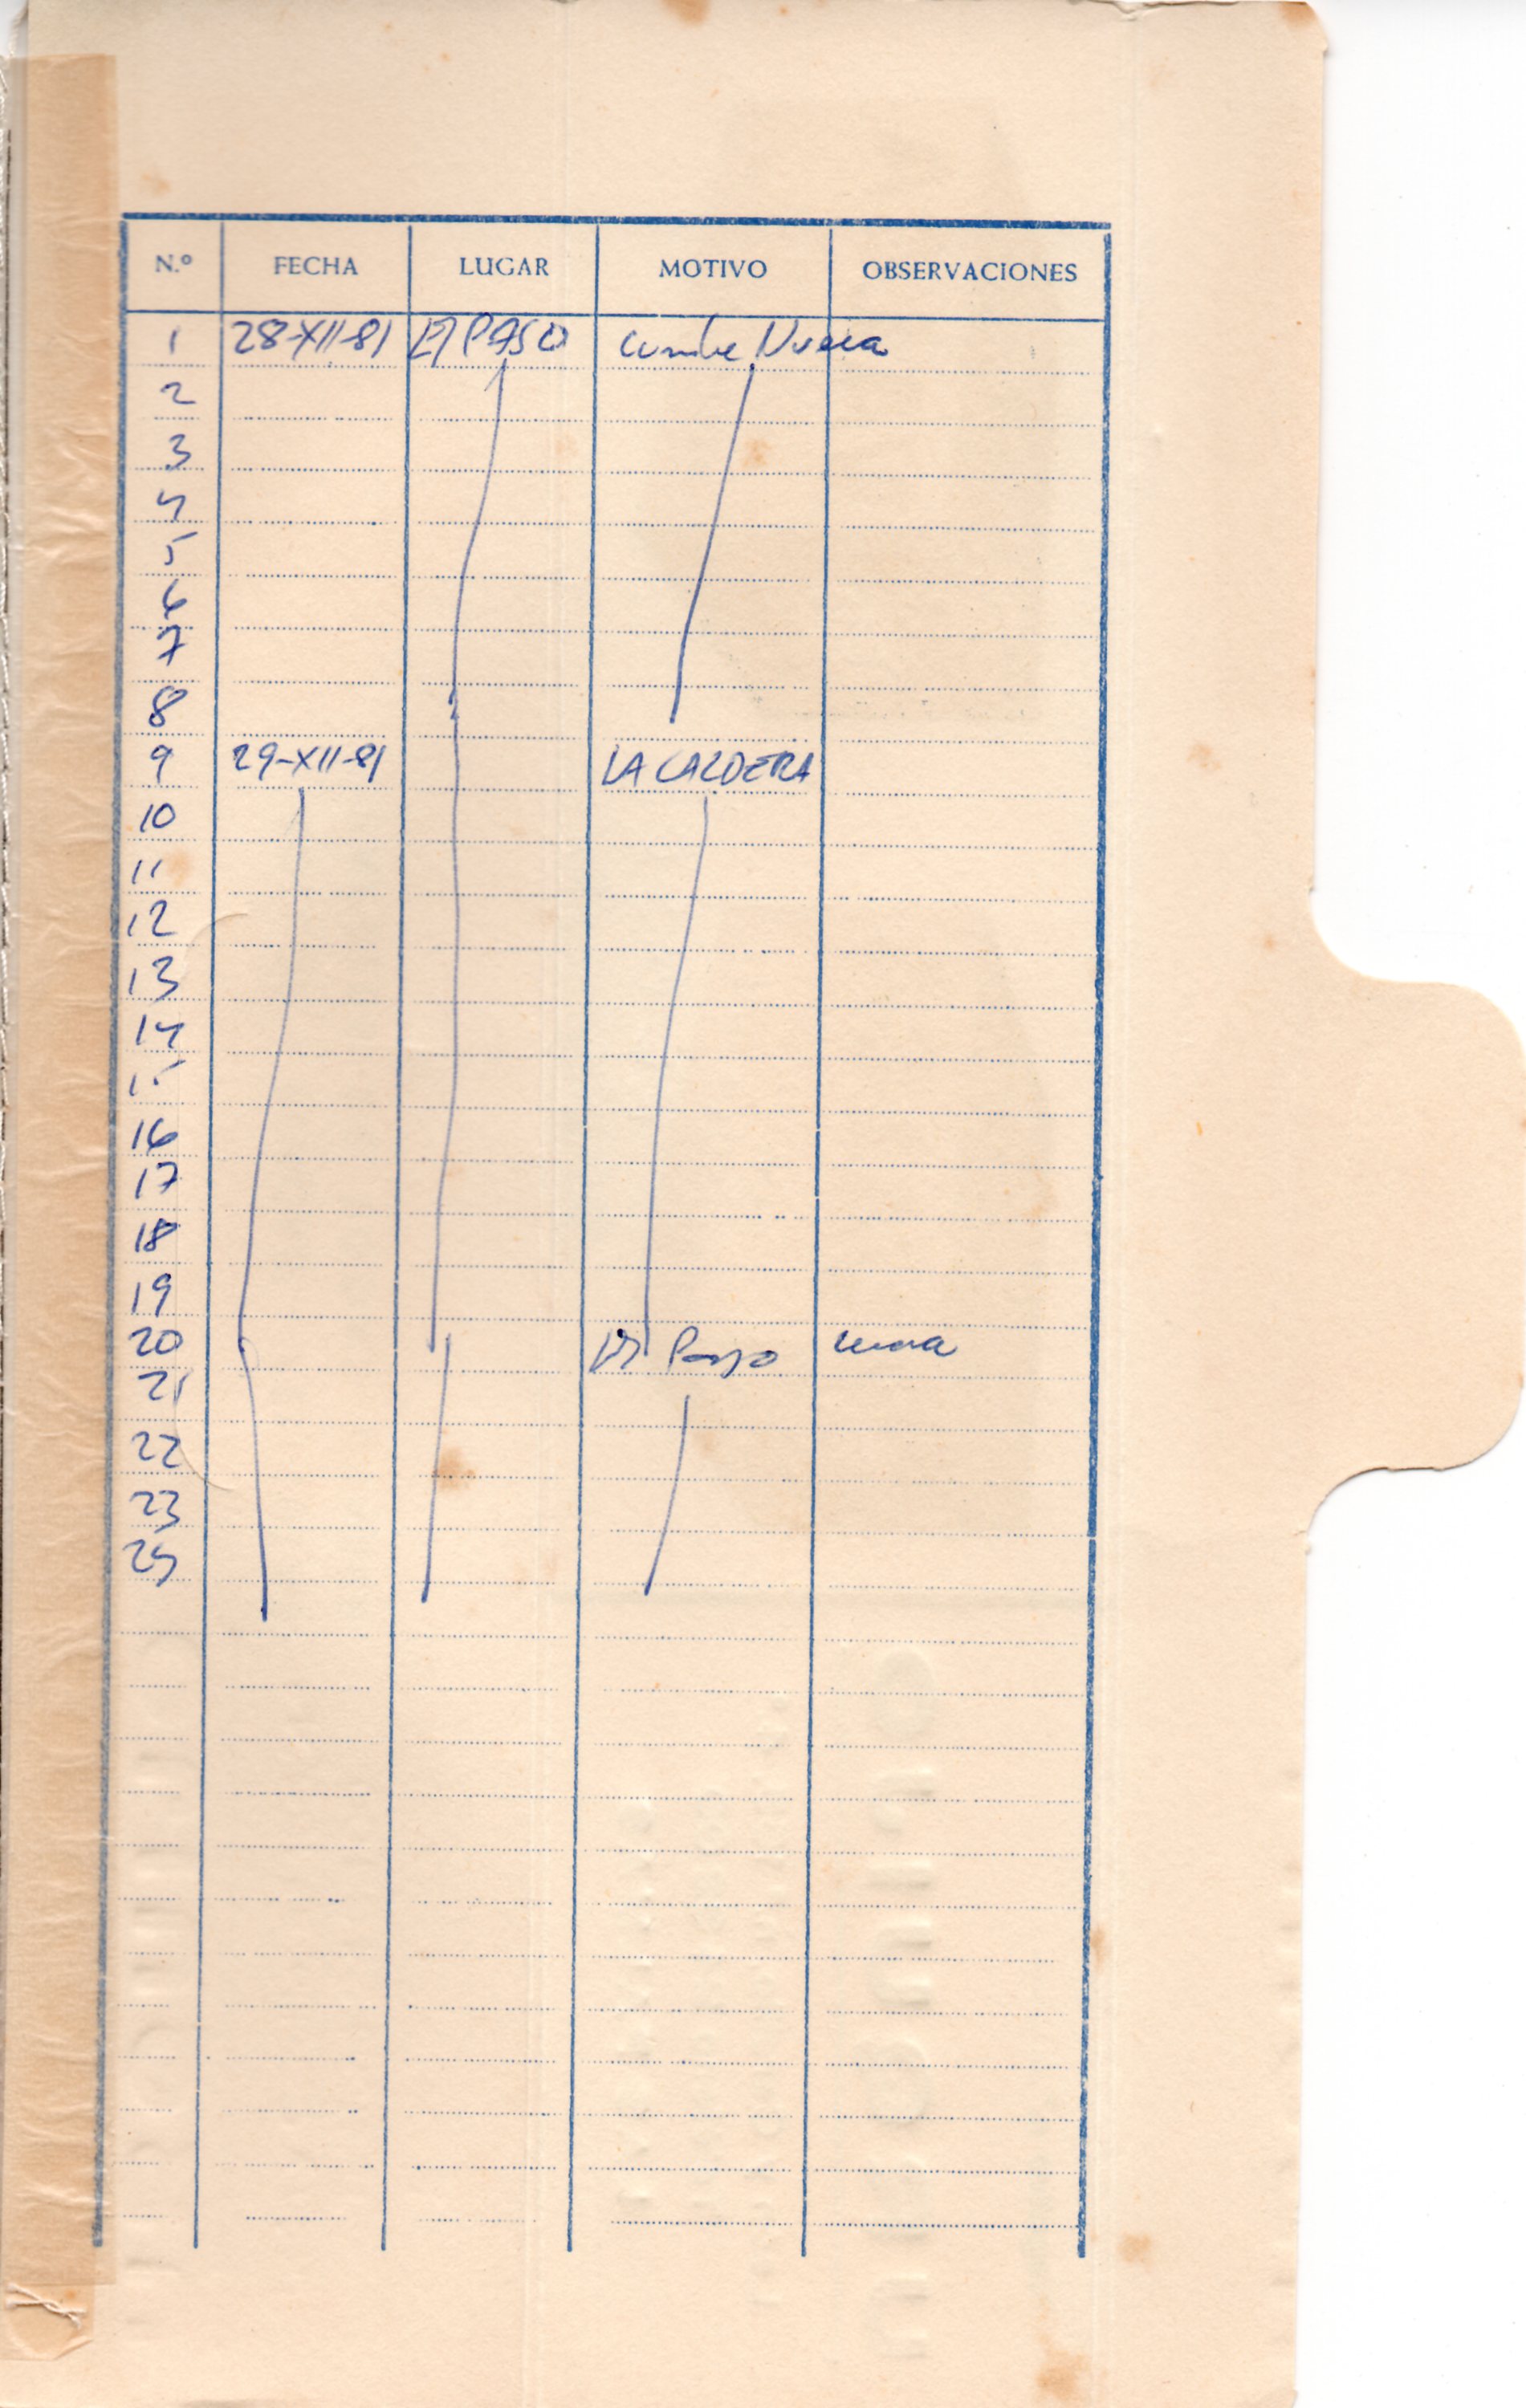 N.º FECHA LUGAR MOTIVO OBSERVACIONES
1 28-XII-81 El PASO Cumbre Nueva
2
3
4
5
6
7
8
9 29-XII-81 LA CALDERA
10
11
12
13
14
15
16
17
18
19
20 El Paso
21
22
23
24